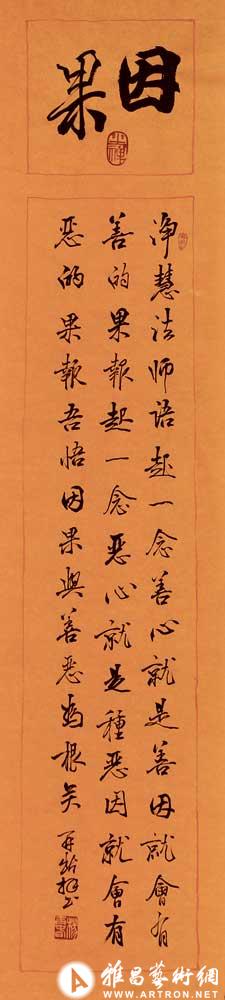 因果
净慧法师语起一念善心就是善因就會有
善的果報起一念恶心就是種恶因就會有
恶的果報吾悟因果與善恶為根矣
雅昌藝術網
WWW.ARTRON.NET